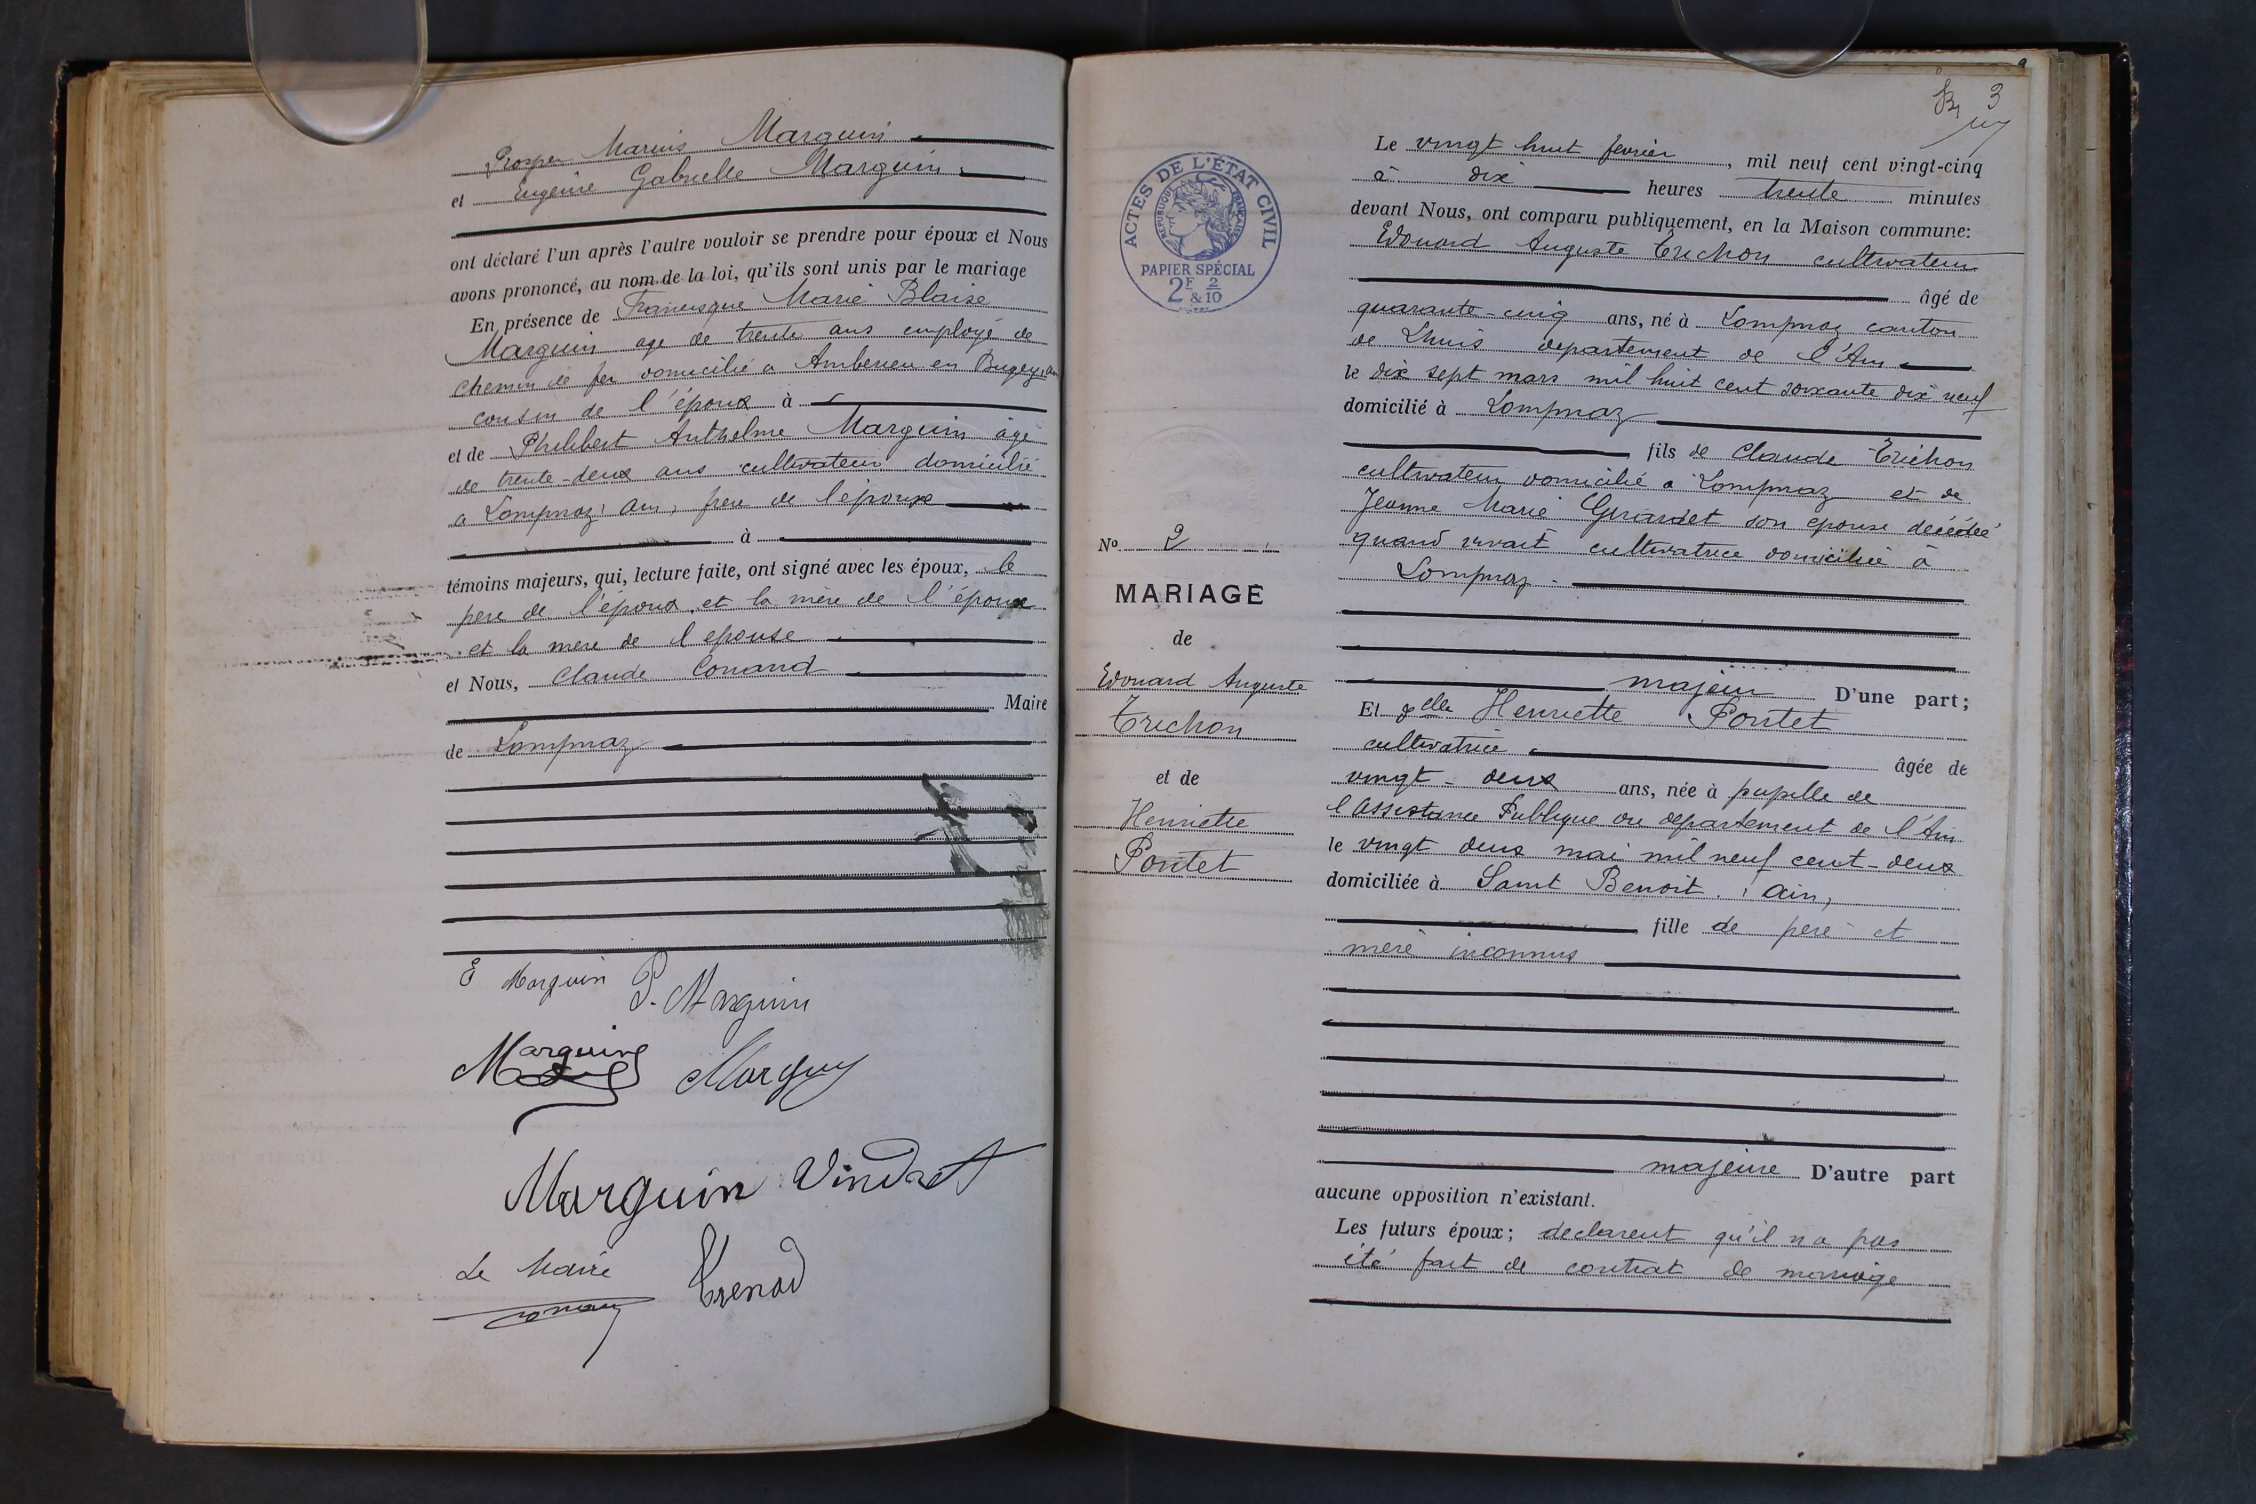 Prosper Marius Marguin
et Eugénie Gabrielle Marguin
ont déclaré l'un après l'autre vouloir se prendre pour époux et Nous
avons prononcé, au nom de la loi, qu'ils sont unis par le mariage
En présence de Francisque Marie Blaise
Marguin age de trente ans employé de
chemin de fer domicilié a Amberieu en Bugey, ain
cousin de l'époux à
et de Philibert Anthelme Marguin âgé
de trente-deux ans cultivateur domicilié
a Lompnaz, ain, frere de l'épouse
à
témoins majeurs, qui, lecture faite, ont signé avec les époux, le
pere de l'époux, et la mère de l'époux
et la mere de l epouse
et Nous, Claude Conand
Maire
de Lompnaz
E Marguin P. Marguin
Marguin
Marguin Vindret
Le Maire Trenod
3
ACTES DE L'ÉTAT CIVIL
RÉPUBLIQUE FRANÇAISE
PAPIER SPÉCIAL
2F 2
& 10
No 2
MARIAGE
de
Edouard Auguste
Trichon
et de
Henriette
Pontet
Le vingt huit fevrier, mil neuf cent vingt-cinq
à dix heures trente minutes
devant Nous, ont comparu publiquement, en la Maison commune:
Edouard Auguste Trichon cultivateur
âgé de
quarante-cinq ans, né à Lompnaz canton
de Lhuis departement de l'Ain
le dix sept mars mil huit cent soixante dix neuf
domicilié à Lompnaz
fils de Claude Trichon
cultivateur domicilié a Lompnaz et de
Jeanne Marie Girardet son epouse décédée
quand vivait cultivatrice domiciliée à
Lompnaz
majeur D'une part;
Et Delle Henriette Pontet
cultivatrice âgée de
vingt-deux ans, née à pupille de
l'Assistance Publique du departement de l'Ain
le vingt deux mai mil neuf cent-deux
domiciliée à Saint Benoit, ain,
fille de père et
mère inconnus
majeure D'autre part
aucune opposition n'existant.
Les futurs époux; declarent qu'il n a pas
été fait de contrat de mariage